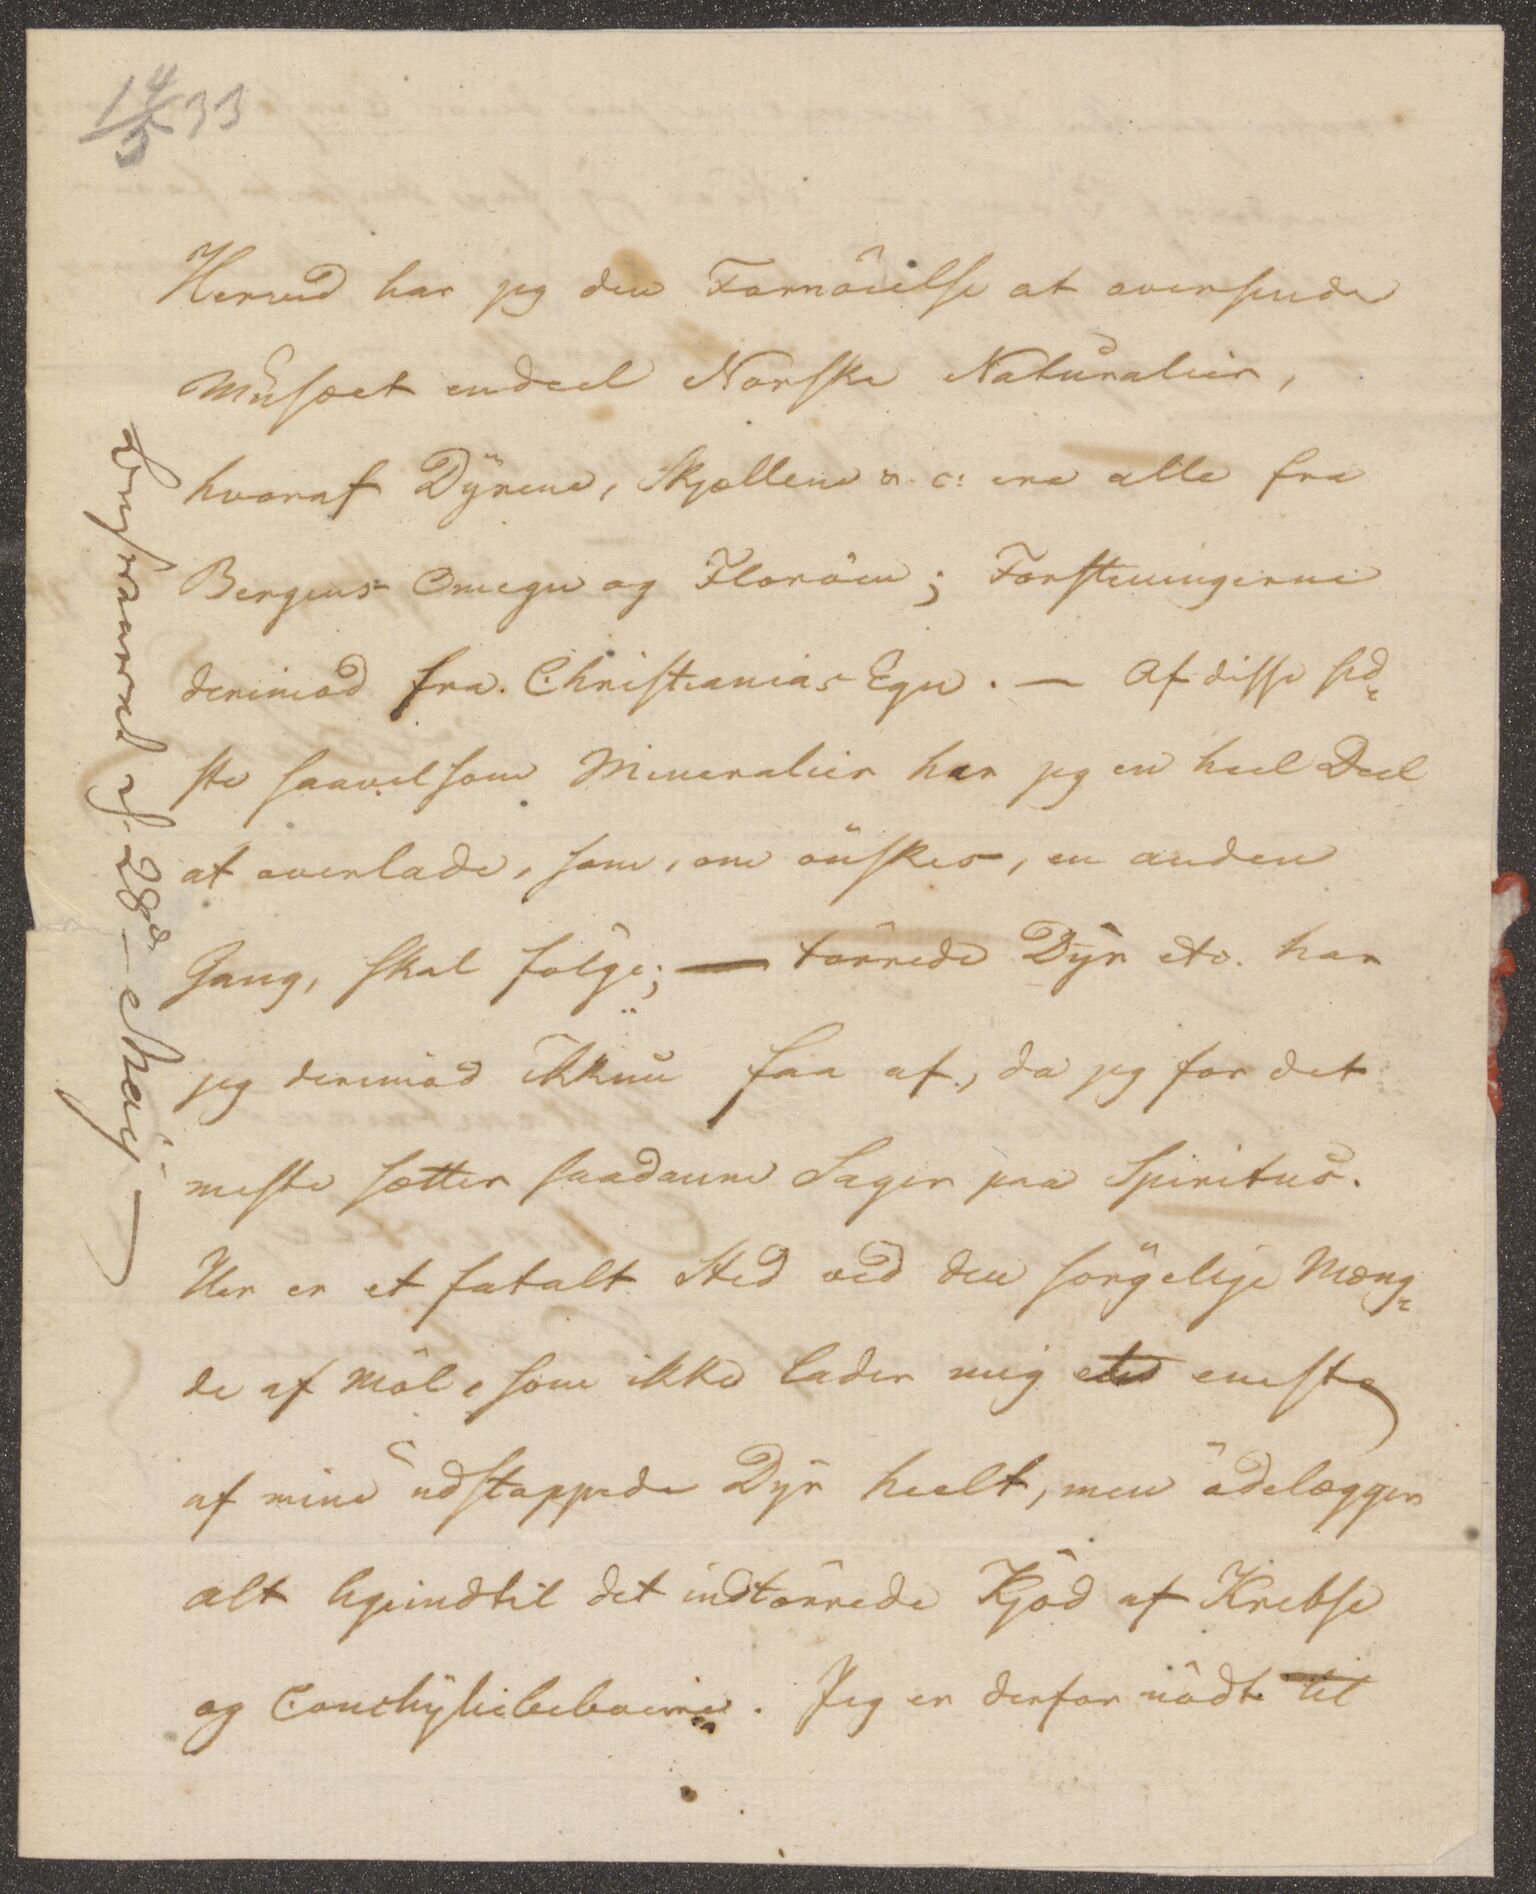 14/5 33
Herved har jeg den Fornöielse at oversende
Musæet endeel Norske Naturalier,
hvoraf Dÿrene, Skjællene &. c: ere alle fra
Bergens Omegn og Floröen; Forsteningerne
derimod fra Christianias Egn. — Af disse sid-
ste saavelsom Mineralier har jeg en heel Deel
at overlade, som, om önskes, en anden
Gang, skal fölge; — törrede Dÿr etc. har
jeg derimod ikkun faa af, da jeg for det
meste sætter saadanne Sager paa Spiritus.
Her er et fatalt Sted ved den sörgelige Mæng-
de af Möl, som ikke lader mig et eneste
af mine udstoppede Dÿr heelt, men ödelægger
alt ligeindtil det indtörrede Kjöd af Krebse
og Conchÿliebeboerne. Jeg er derfor nödt til
Besvaret d. 28d — Maij —